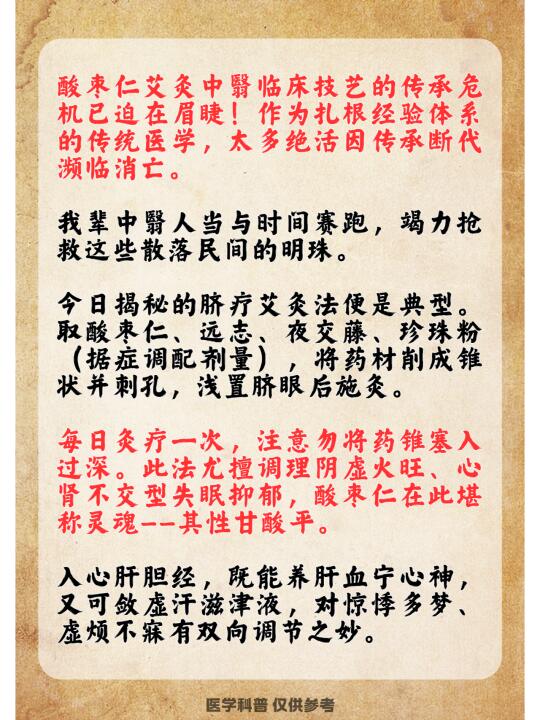 酸枣仁艾灸中翳临床技艺的传承危
机已迫在眉睫！作为扎根经验体系
的传统医学，太多绝活因传承断代
濒临消亡。
我辈中翳人当与时间赛跑，竭力抢
救这些散落民间的明珠。
今日揭秘的脐疗艾灸法便是典型。
取酸枣仁、远志、夜交藤、珍珠粉
（据症调配剂量），将药材削成锥
状并刺孔，浅置脐眼后施灸。
每日灸疗一次，注意勿将药锥塞入
过深。此法尤擅调理阴虚火旺、心
肾不交型失眠抑郁，酸枣仁在此堪
称灵魂--其性甘酸平。
入心肝胆经，既能养肝血宁心神，
又可敛虚汗滋津液，对惊悸多梦、
虚烦不寐有双向调节之妙。
医学科普 仅供参考